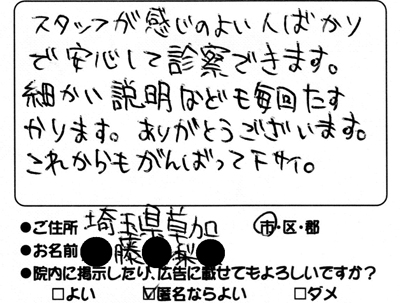 スタッフが感じのよい人ばかり
で安心して診察できます。
細かい説明なども毎回たす
かります。ありがとうございます。
これからもがんばって下サイ。
●ご住所 埼玉県草加 市・区・郡
●お名前 藤 梨
●院内に掲示したり、広告に載せてもよろしいですか？
□よい ☑匿名ならよい □ダメ